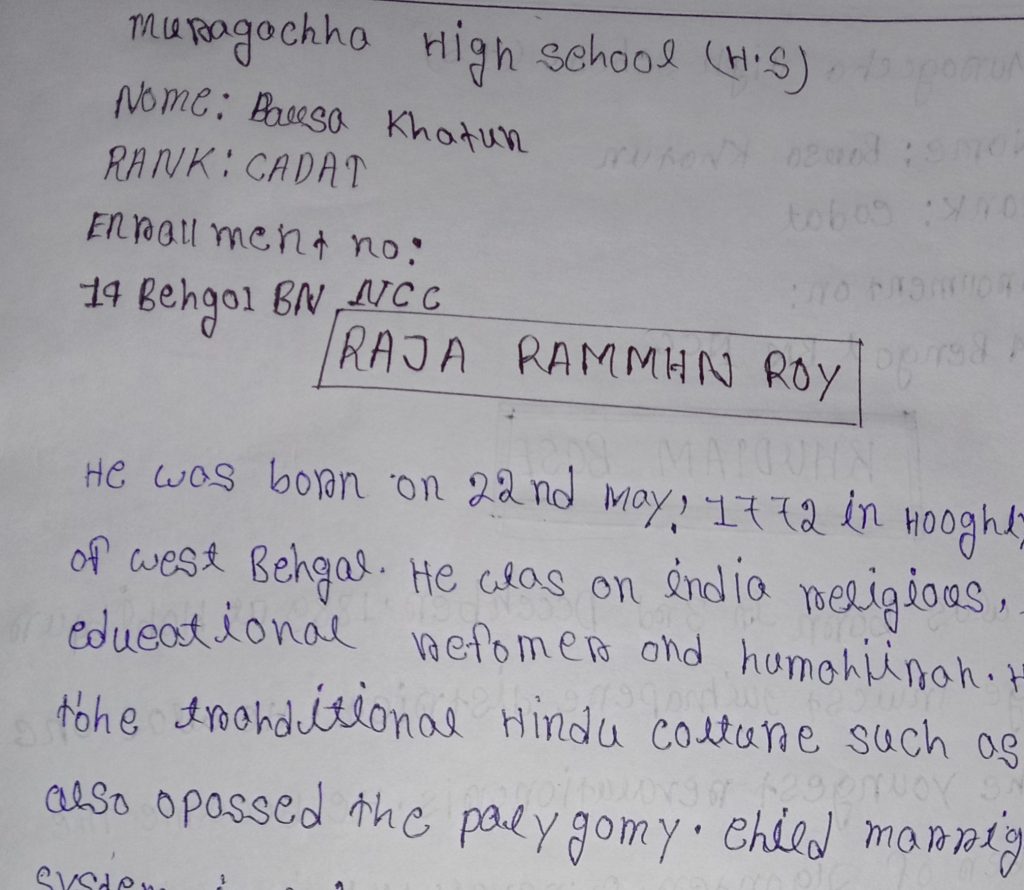 Muragachha High school (H.S)
Name: Raesa Khatun
RANK: CADAT
Enrallment no:
17 Bengal BN NCC
RAJA RAMMHN ROY
He was born on 22nd May, 1772 in Hooghly
of west Bengal. He was on india religious,
educational refomer and humanitiran.
the tranditional Hindu culture such as
also opossed the polygomy. Child marrig
system